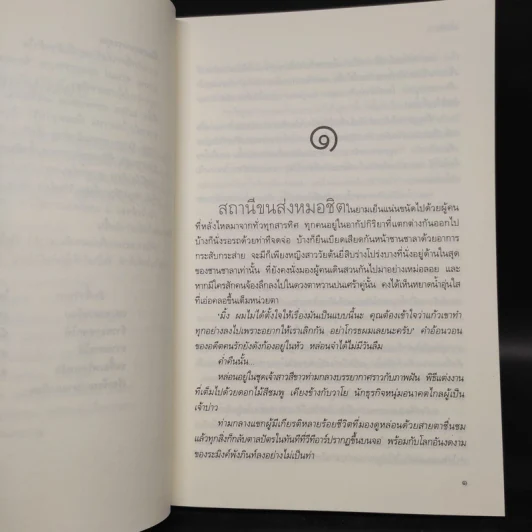 ๑
สถานีขนส่งหมอชิตในยามเย็นแน่นขนัดไปด้วยผู้คน
ที่หลั่งไหลมาจากทั่วทุกสารทิศ ทุกคนอยู่ในอากัปกิริยาที่แตกต่างกันออกไป
บ้างก็นั่งรอรถด้วยท่าทีจดจ่อ บ้างก็ยืนเบียดเสียดกันหน้าชานชาลาด้วยอาการ
กระสับกระส่าย จะมีก็เพียงหญิงสาววัยต้นยี่สิบร่างโปร่งบางที่นั่งอยู่ด้านในสุด
ของชานชาลาเท่านั้น ที่ยังคงนั่งมองผู้คนเดินสวนกันไปมาอย่างเหม่อลอย และ
หากมีใครสักคนจ้องลึกลงไปในดวงตาหวานปนเศร้าคู่นั้น คงได้เห็นหยาดน้ำอุ่นใส
ที่เอ่อคลอขึ้นเต็มหน่วยตา
'มิ้ง ผมไม่ได้ตั้งใจให้เรื่องมันเป็นแบบนี้นะ คุณต้องเข้าใจว่าแก้วเขาทำ
ทุกอย่างลงไปเพราะอยากให้เราเลิกกัน อย่าโกรธผมเลยนะครับ' คำอ้อนวอน
ของอดีตคนรักยังดังก้องอยู่ในหัว หล่อนจำได้ไม่มีวันลืม
ค่ำคืนนั้น...
หล่อนอยู่ในชุดเจ้าสาวสีขาวท่ามกลางบรรยากาศราวกับภาพฝัน พิธีแต่งงาน
ที่เต็มไปด้วยดอกไม้สีชมพู เคียงข้างกับวาโย นักธุรกิจหนุ่มอนาคตไกลผู้เป็น
เจ้าบ่าว
ท่ามกลางแขกผู้มีเกียรติหลายร้อยชีวิตที่มองดูหล่อนด้วยสายตาชื่นชม
แล้วทุกสิ่งก็กลับตาลปัตรในทันทีที่วีทีอาร์ปรากฏขึ้นบนจอ พร้อมกับโลกอันงดงาม
ของระมิงค์พังภินท์ลงอย่างไม่เป็นท่า
๑